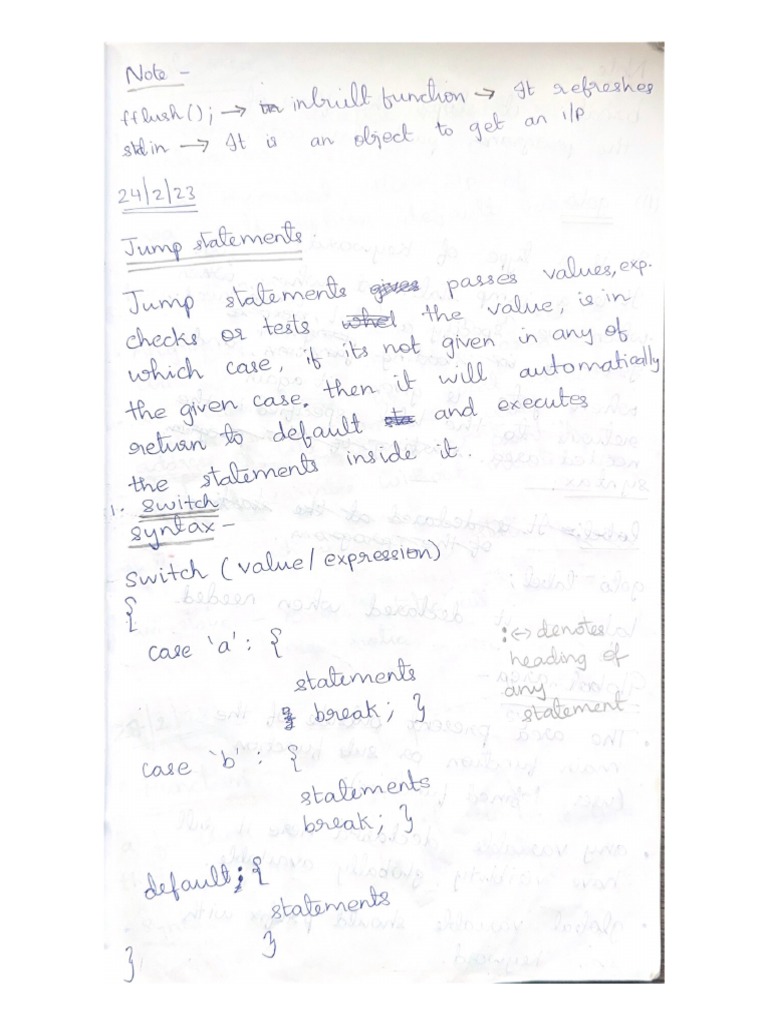 Note -
fflush(); → inbuilt function → It refreshes
stdin → It is an object to get an i/p
24/2/23
Jump statements
Jump statements gives passes values, exp.
checks or tests the value, is in
which case, if its not given in any of
the given case, then it will automatically
return to default and executes
the statements inside it.
1. switch
syntax -
switch (value / expression)
{
case 'a': {
statements
break; }
: ↔ denotes
heading of
any
statement
case 'b': {
statements
break; }
default; {
statements
}
}